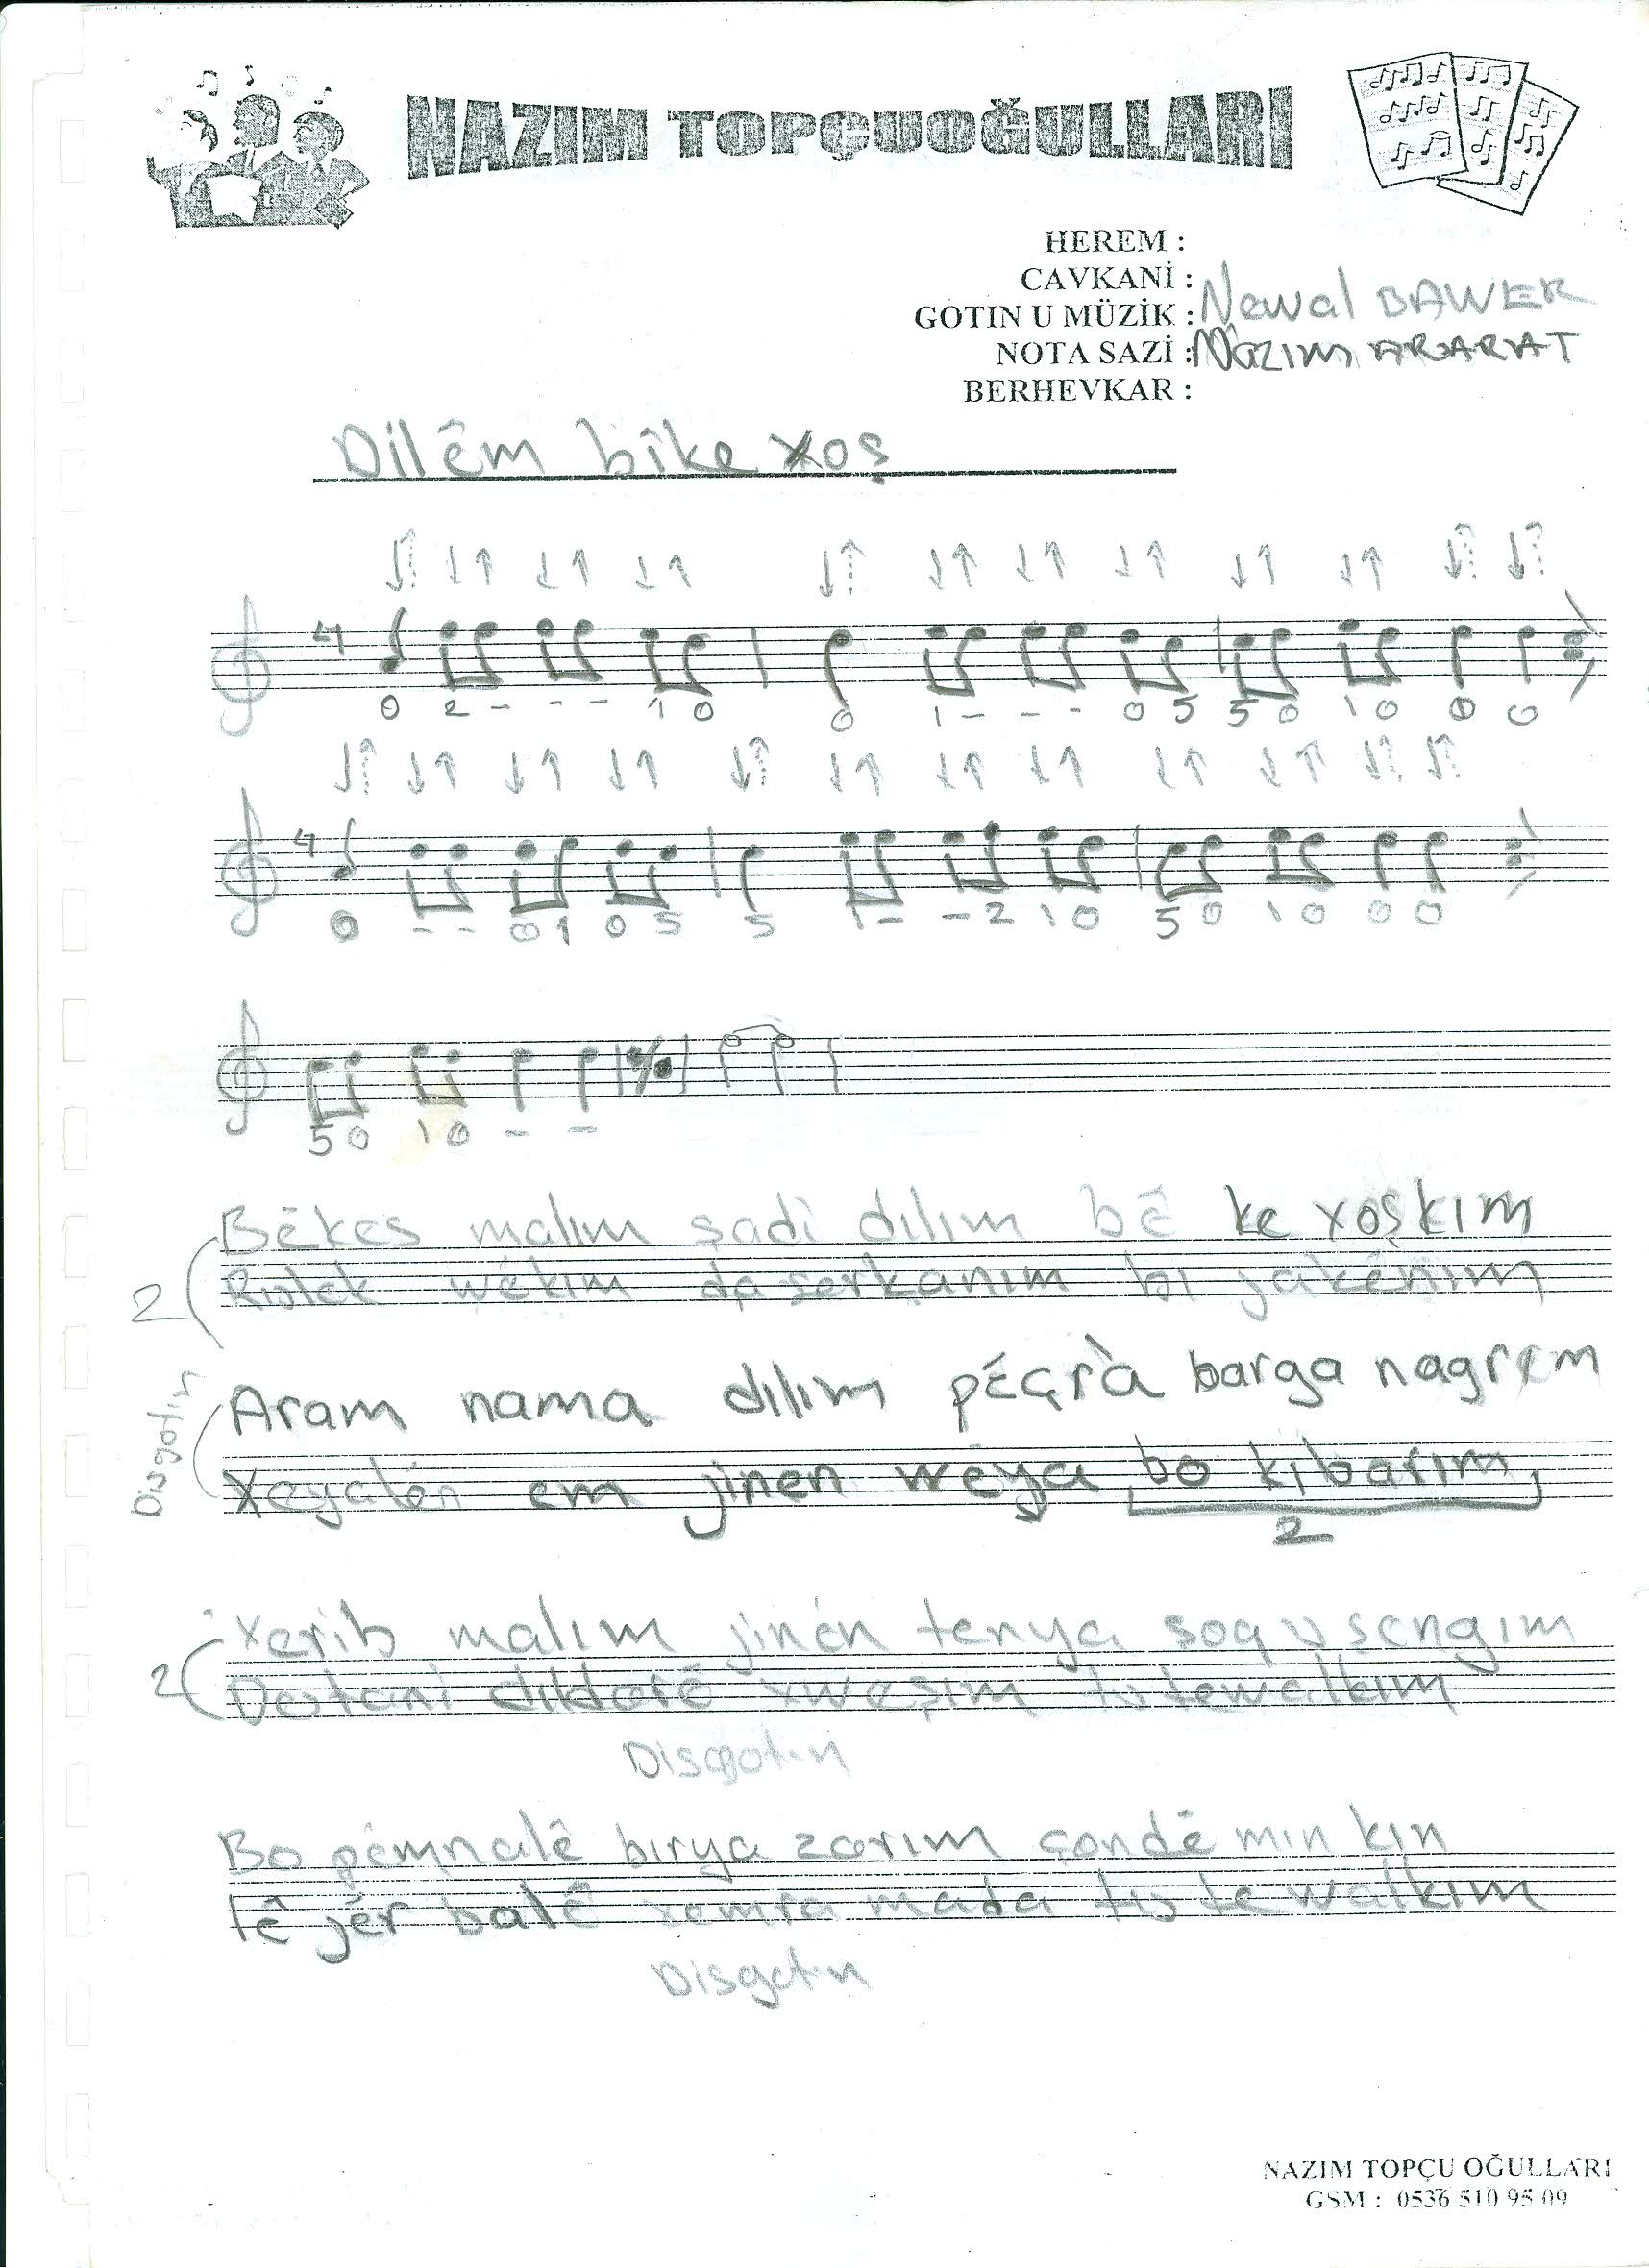 NAZIM TOPÇUOĞULLARI
HEREM :
CAVKANİ :
GOTIN U MÜZİK : Newal BAWER
NOTA SAZİ : Nazım ARARAT
BERHEVKAR :
Dilêm bîke xoş
4
0 2 - - - 1 0 0 1 - - - 0 5 5 0 1 0 0 0
4
0 - - 0 1 0 5 5 1 - - 2 1 0 5 0 1 0 0 0
5 0 1 0 - -
Bêkes malım şadi dılım bê ke xoşkım
2 wêkım da serkanım bı jakênım
Aram nama dılım pêçrà barga nagrım
Disgotin
Xeyalên em jinen wêya bo kibarım
2
xerib malım jinên tenya soq u sengım
2 Destani dıldarê xweşım tu tewalkım
Disgotin
Bo pêmnalê bırya zarım çondê min kın
tê jêr balê xemra mada tu te walkım
Disgotin
NAZIM TOPÇU OĞULLARI
GSM : 0536 510 95 09